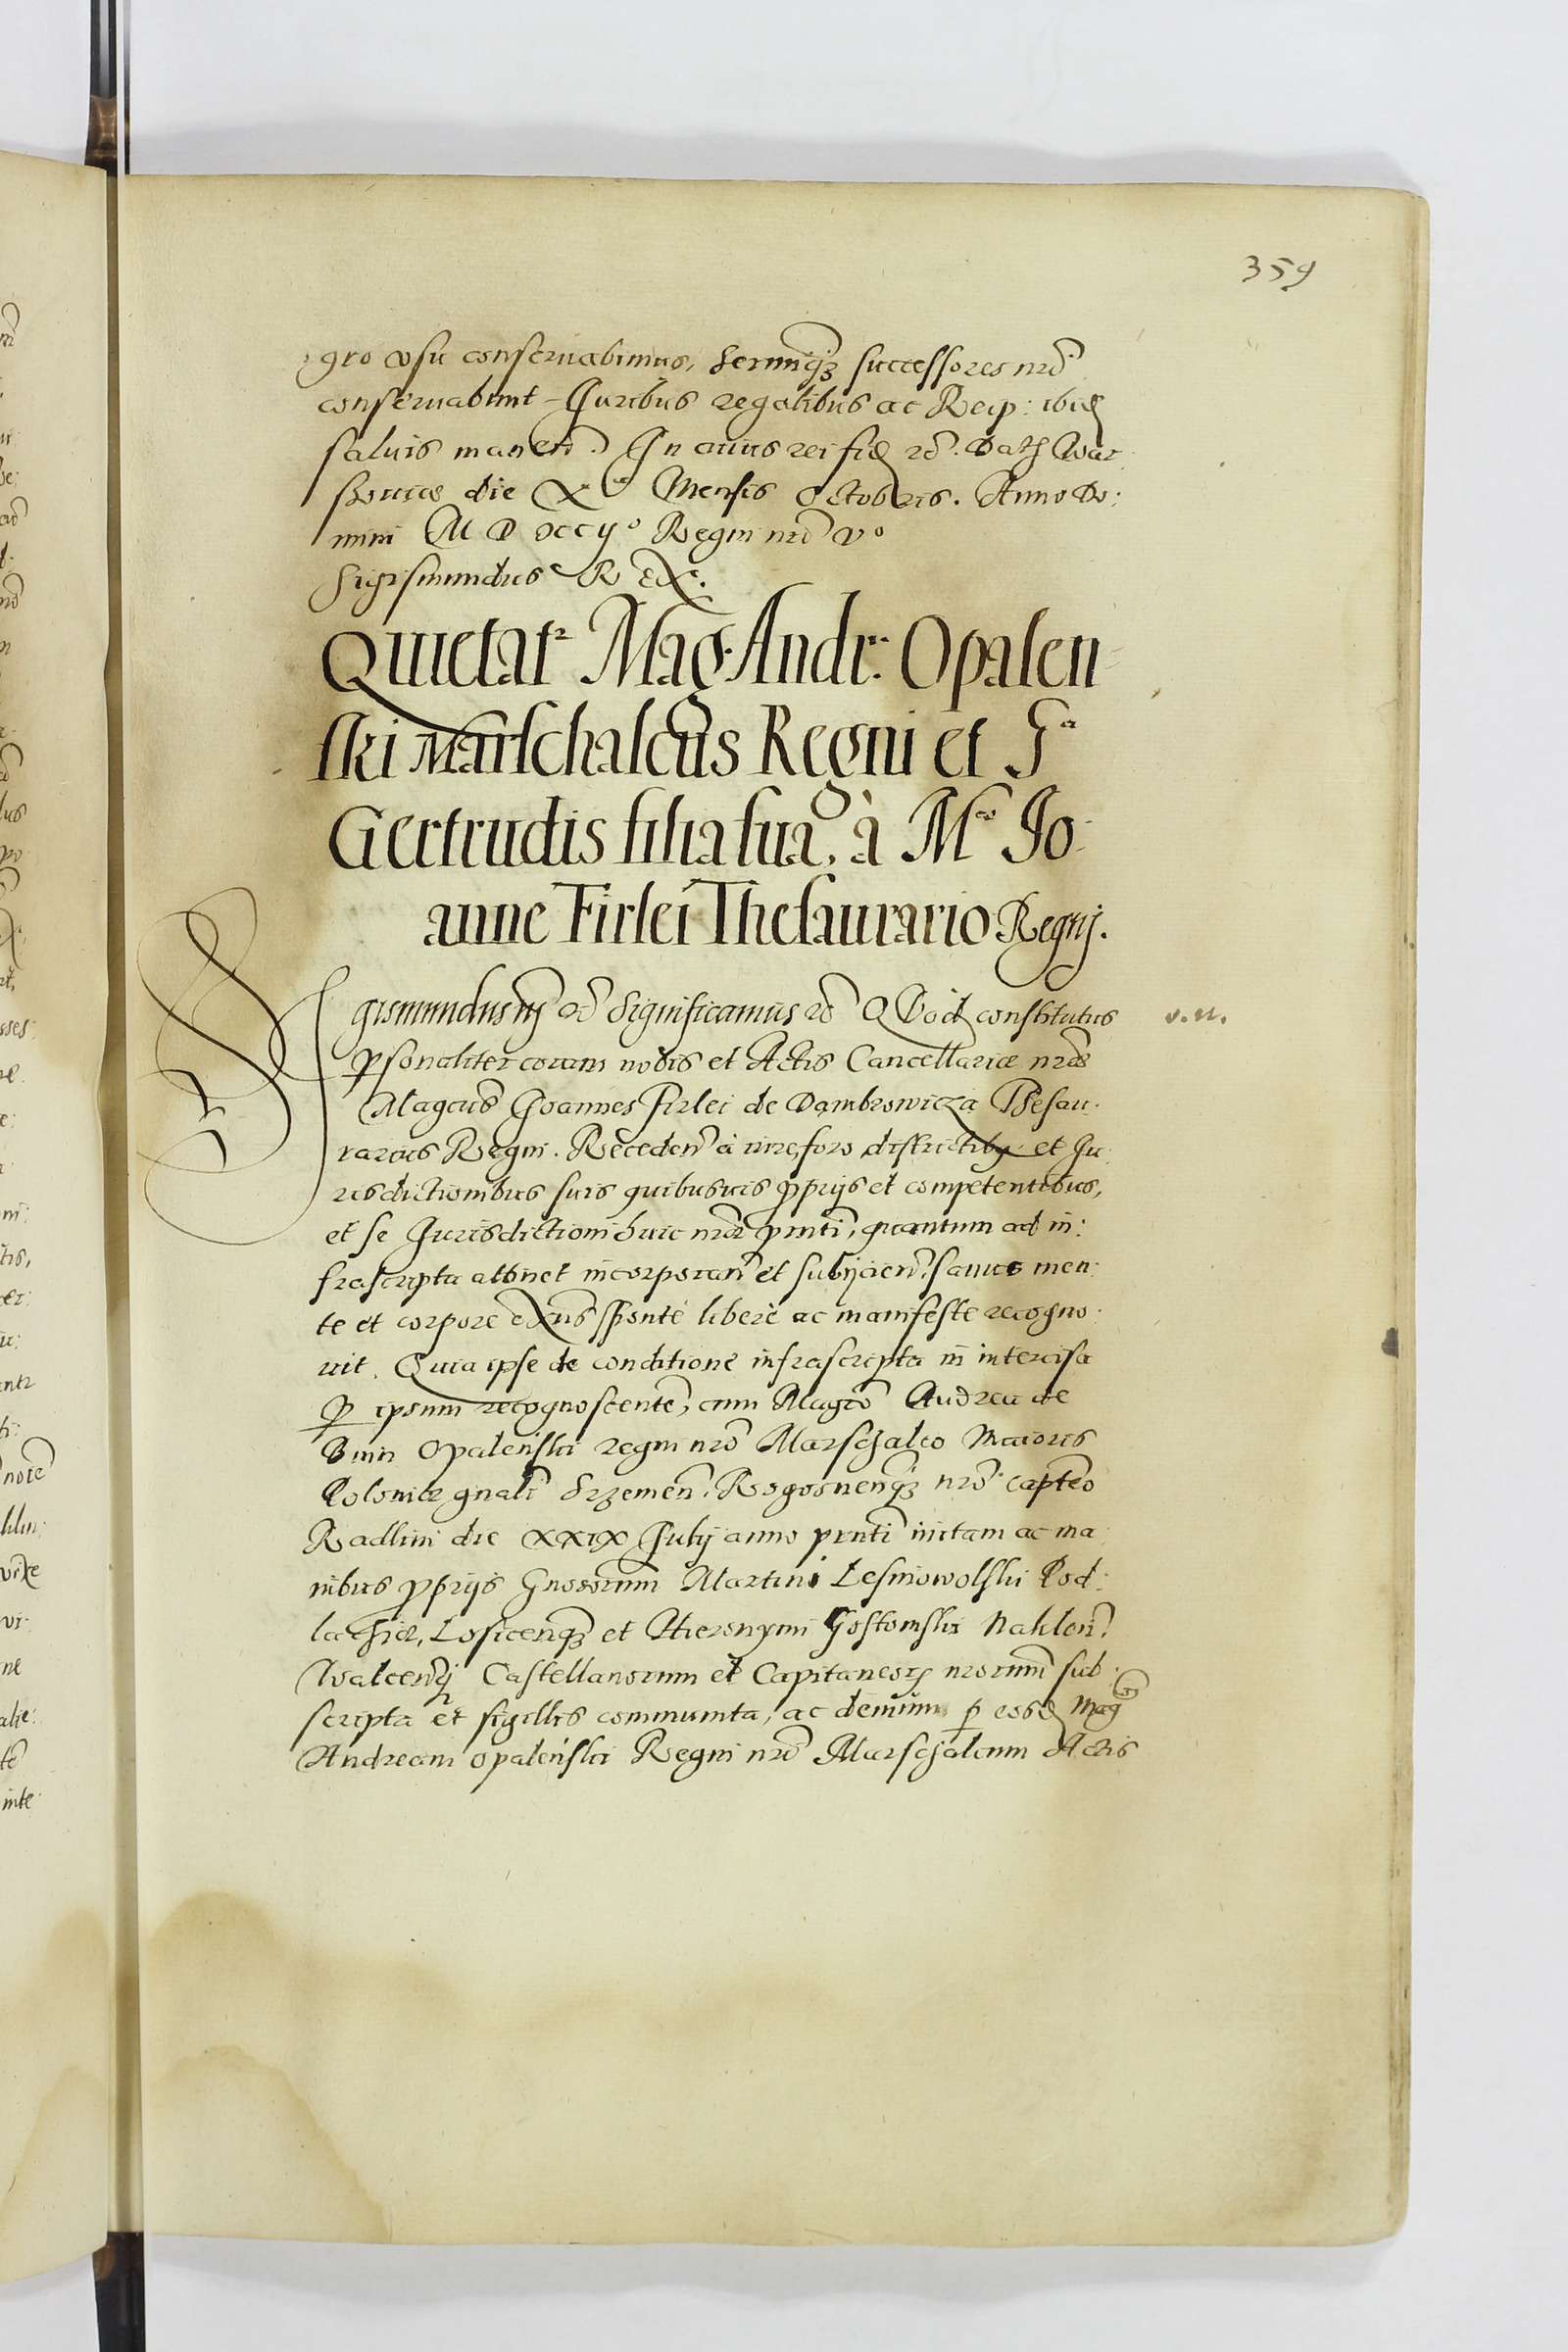 359
gro usu conservabimus, Sermiq₃ successores nrĩ
conservabunt Juribus regalibus ac Reip: ibid
salvis manen. In cuius rei fid rc̃. Dat Var
soviæ die X Mensis Octobris. Anno Do:
mini M D XCIJ° Regni nrĩ V°
Sigismundus REX.
Quietat² Mag. Andr: Opalen
ski Marschalcus Regni et G.ª
Gertrudis filia sua, à M.co Jo
anne Firlei Thesaurario Regnj.
Sigismundus iij rc̃ Significamus rc̃ Quod constitutus
v.n.
psonaliter coram nobis et Actis Cancellariæ nræ
Magcus Joannes Firlei de Dambrowicza Thesau
rarius Regni. Receden à iure, foro districtibq et Ju
risdictionibus suis quibusvis pprijs et competentibus,
et se Jurisdictioni huic nræ pnti, quantum ad in:
frascripta attinet incorporan et subijcien, sanus men:
te et corpore exñs sponte libere ac manifeste recogno:
vit. Quia ipse de conditione infrascripta in intercisa
p ipsum recognoscente, cum Magco Andrea de
Bnin Opaleński regni nrĩ Marschalco Maioris
Poloniæ gnali Srzemen. Rogosnenq₃ nrõ capteo
Radlini die XXIX Julij anno pnti initam ac ma
nibus pprijs Gnosorum Martini Lesniowolski Pod:
lachiæ, Losicenq₃ et Hieronymi Gostomski Naklen.
Walcenq Castellanorum et Capitaneor nrorum sub
scripta et sigillis communita, ac demum p eosd Mag
Andream Opaleński Regni nrĩ Marschalcum Actis